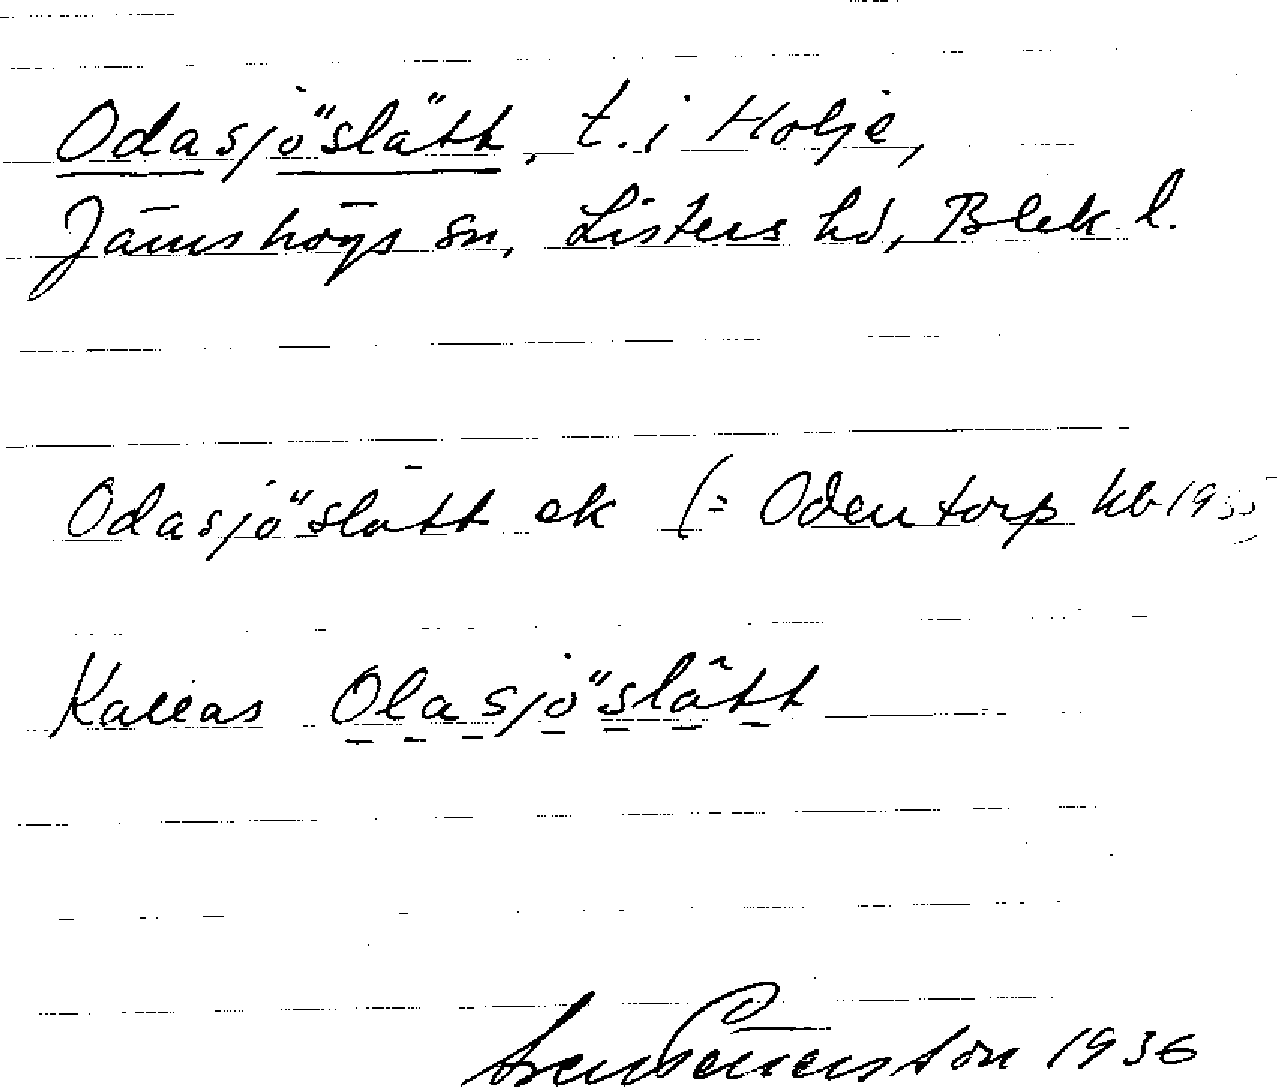 Odasjöslätt, t. i Holje,
Jämshögs sn, Listers hd, Blek. l.
Odasjöslätt ek (= Odentorp kb 1935
Kallas Olasjöslätt
1936